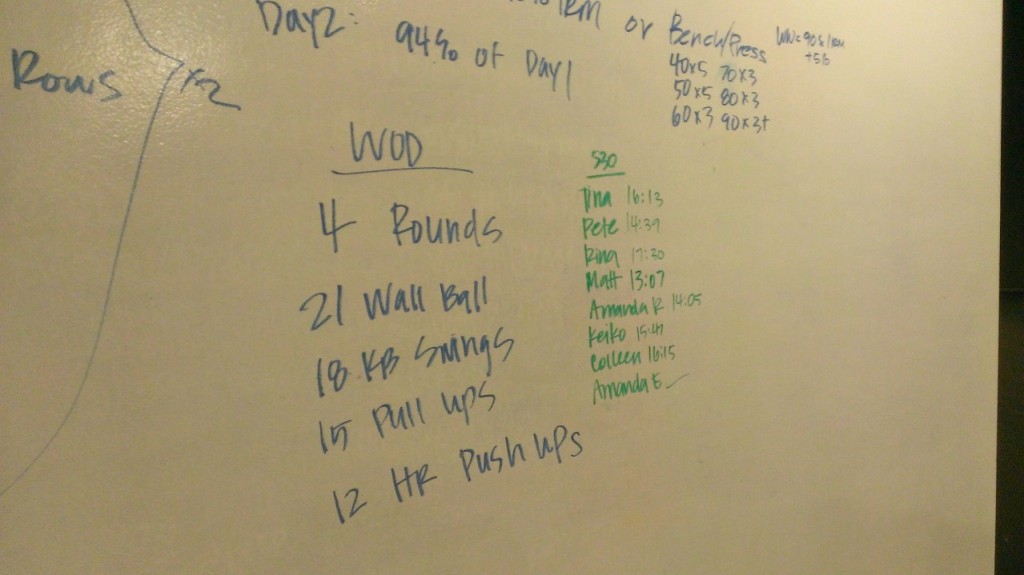 1RM or Bench/Press
Day2: 94% of Day1
40x5 70x3
50x5 80x3
60x3 90x3+
+5lb
Rows x2
WOD
4 Rounds
21 Wall Ball
18 KB Swings
15 Pull ups
12 HR Push ups
530
Tina 16:13
Pete 14:39
Rina 17:30
Matt 13:07
Amanda R 14:05
Keiko
Colleen 16:15
Amanda E ✓